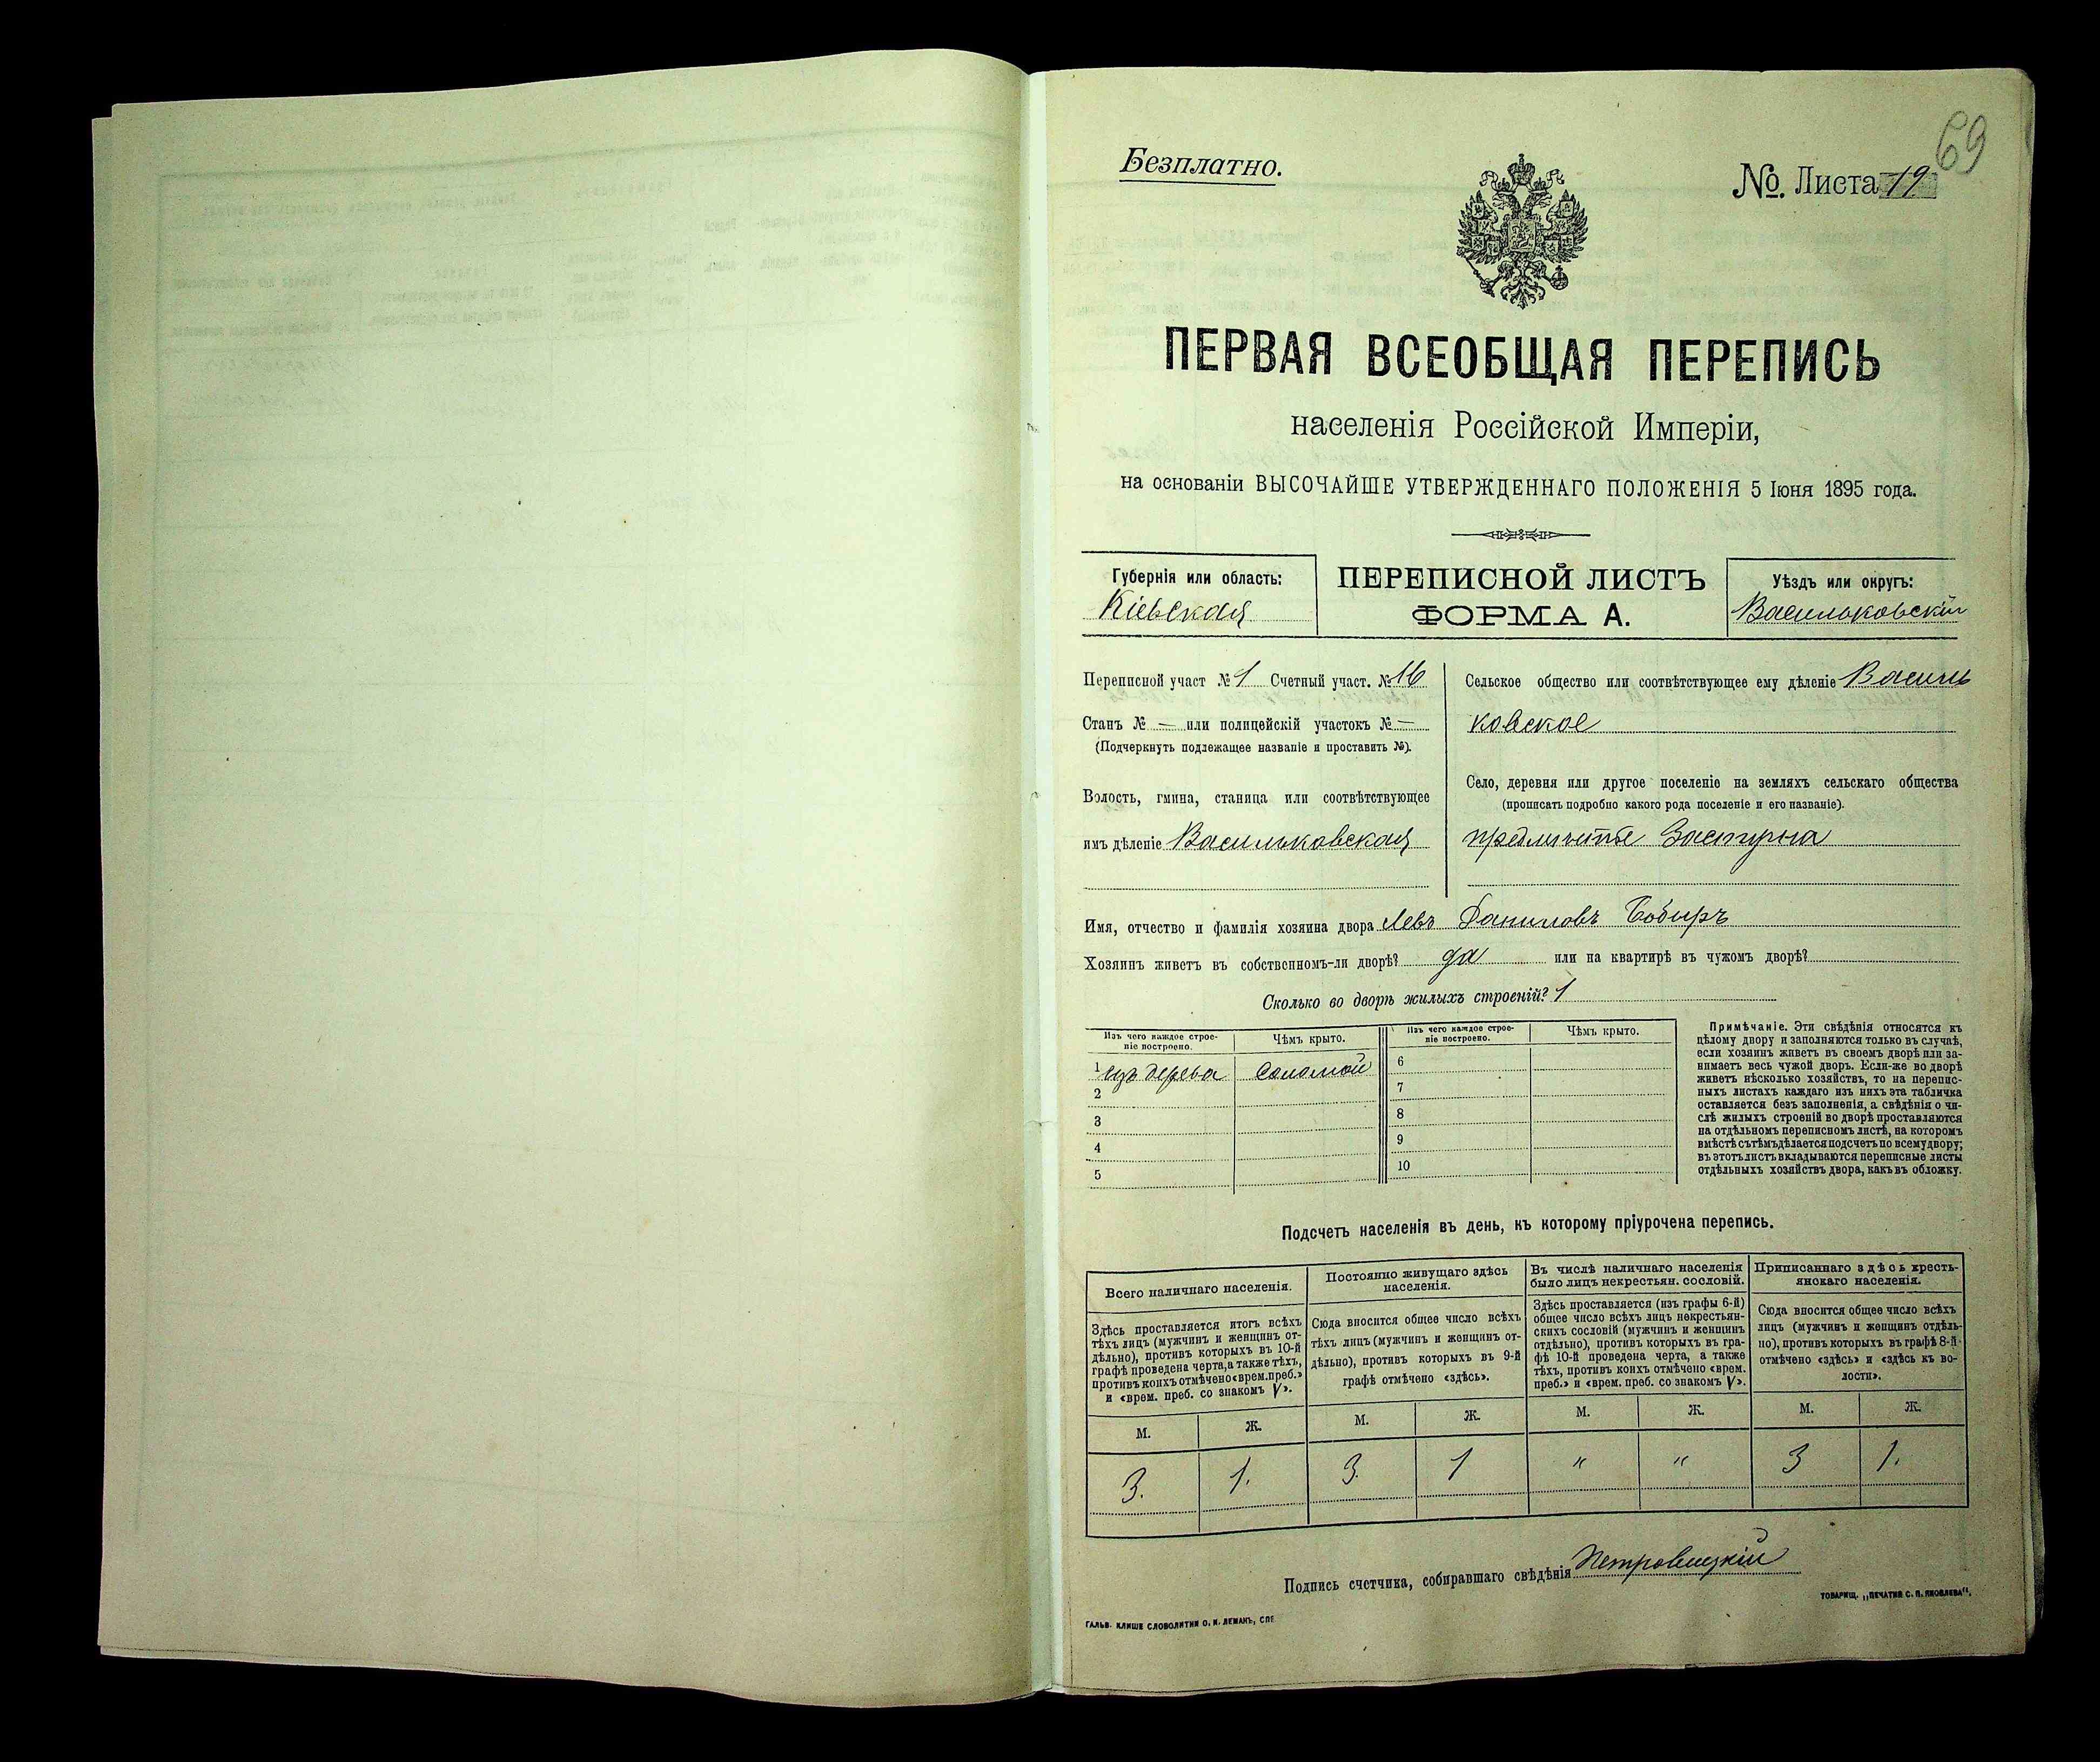 69
Безплатно.
№. Листа 19
ПЕРВАЯ ВСЕОБЩАЯ ПЕРЕПИСЬ
населенія Россійской Имперіи,
на основаніи ВЫСОЧАЙШЕ УТВЕРЖДЕННАГО ПОЛОЖЕНІЯ 5 Іюня 1895 года.
Губернія или область:
Кіевская
ПЕРЕПИСНОЙ ЛИСТЪ
ФОРМА А.
Уѣздъ или округъ:
Васильковскій
Переписной участ № 1 Счетный участ. № 16
Станъ № — или полицейскій участокъ № —
(Подчеркнуть подлежащее названіе и проставить №).
Волость, гмина, станица или соотвѣтствующее
имъ дѣленіе Васильковская
Сельское общество или соотвѣтствующее ему дѣленіе Василь
ковское
Село, деревня или другое поселеніе на земляхъ сельскаго общества
(прописать подробно какого рода поселеніе и его названіе).
предмѣстье Застугна
Имя, отчество и фамилія хозяина двора Левъ Даниловъ Бобиръ
Хозяинъ живетъ въ собственномъ-ли дворѣ? да или на квартирѣ въ чужомъ дворѣ?
Сколько во дворѣ жилыхъ строеній? 1
Изъ чего каждое строе-
ніе построено.
Чѣмъ крыто.
1 изъ дерева соломой
2
3
4
5
Изъ чего каждое строе-
ніе построено.
Чѣмъ крыто.
6
7
8
9
10
Примѣчаніе. Эти свѣдѣнія относятся къ
цѣлому двору и заполняются только въ случаѣ,
если хозяинъ живетъ въ своемъ дворѣ или за-
нимаетъ весь чужой дворъ. Если-же во дворѣ
живетъ нѣсколько хозяйствъ, то на перепис-
ныхъ листахъ каждаго изъ нихъ эта табличка
оставляется безъ заполненія, а свѣдѣнія о чи-
слѣ жилыхъ строеній во дворѣ проставляются
на отдѣльномъ переписномъ листѣ, на которомъ
вмѣстѣ съ тѣмъ дѣлается подсчетъ по всему двору;
въ этотъ листъ вкладываются переписные листы
отдѣльныхъ хозяйствъ двора, какъ въ обложку.
Подсчетъ населенія въ день, къ которому пріурочена перепись.
Всего наличнаго населенія.
Здѣсь проставляется итогъ всѣхъ
тѣхъ лицъ (мужчинъ и женщинъ от-
дѣльно), противъ которыхъ въ 10-й
графѣ проведена черта, а также тѣхъ,
противъ коихъ отмѣчено «врем. преб.»
и «врем. преб. со знакомъ V».
М. Ж.
3. 1.
Постоянно живущаго здѣсь
населенія.
Сюда вносится общее число всѣхъ
тѣхъ лицъ (мужчинъ и женщинъ от-
дѣльно), противъ которыхъ въ 9-й
графѣ отмѣчено «здѣсь».
М. Ж.
3. 1
Въ числѣ наличнаго населенія
было лицъ некрестьян. сословій.
Здѣсь проставляется (изъ графы 6-й)
общее число всѣхъ лицъ некрестьян-
скихъ сословій (мужчинъ и женщинъ
отдѣльно), противъ которыхъ въ гра-
фѣ 10-й проведена черта, а также
тѣхъ, противъ коихъ отмѣчено «врем.
преб.» и «врем. преб. со знакомъ V».
М. Ж.
" "
Приписаннаго здѣсь кресть-
янскаго населенія.
Сюда вносится общее число всѣхъ
лицъ (мужчинъ и женщинъ отдѣль-
но), противъ которыхъ въ графѣ 8-й
отмѣчено «здѣсь» и «здѣсь къ во-
лости».
М. Ж.
3 1.
Подпись счетчика, собиравшаго свѣдѣнія Петровицкій
ТОВАРИЩ. „ПЕЧАТНЯ С. П. ЯКОВЛЕВА“.
ГАЛЬВ. КЛИШЕ СЛОВОЛИТНИ О. И. ЛЕМАНЪ, СПБ